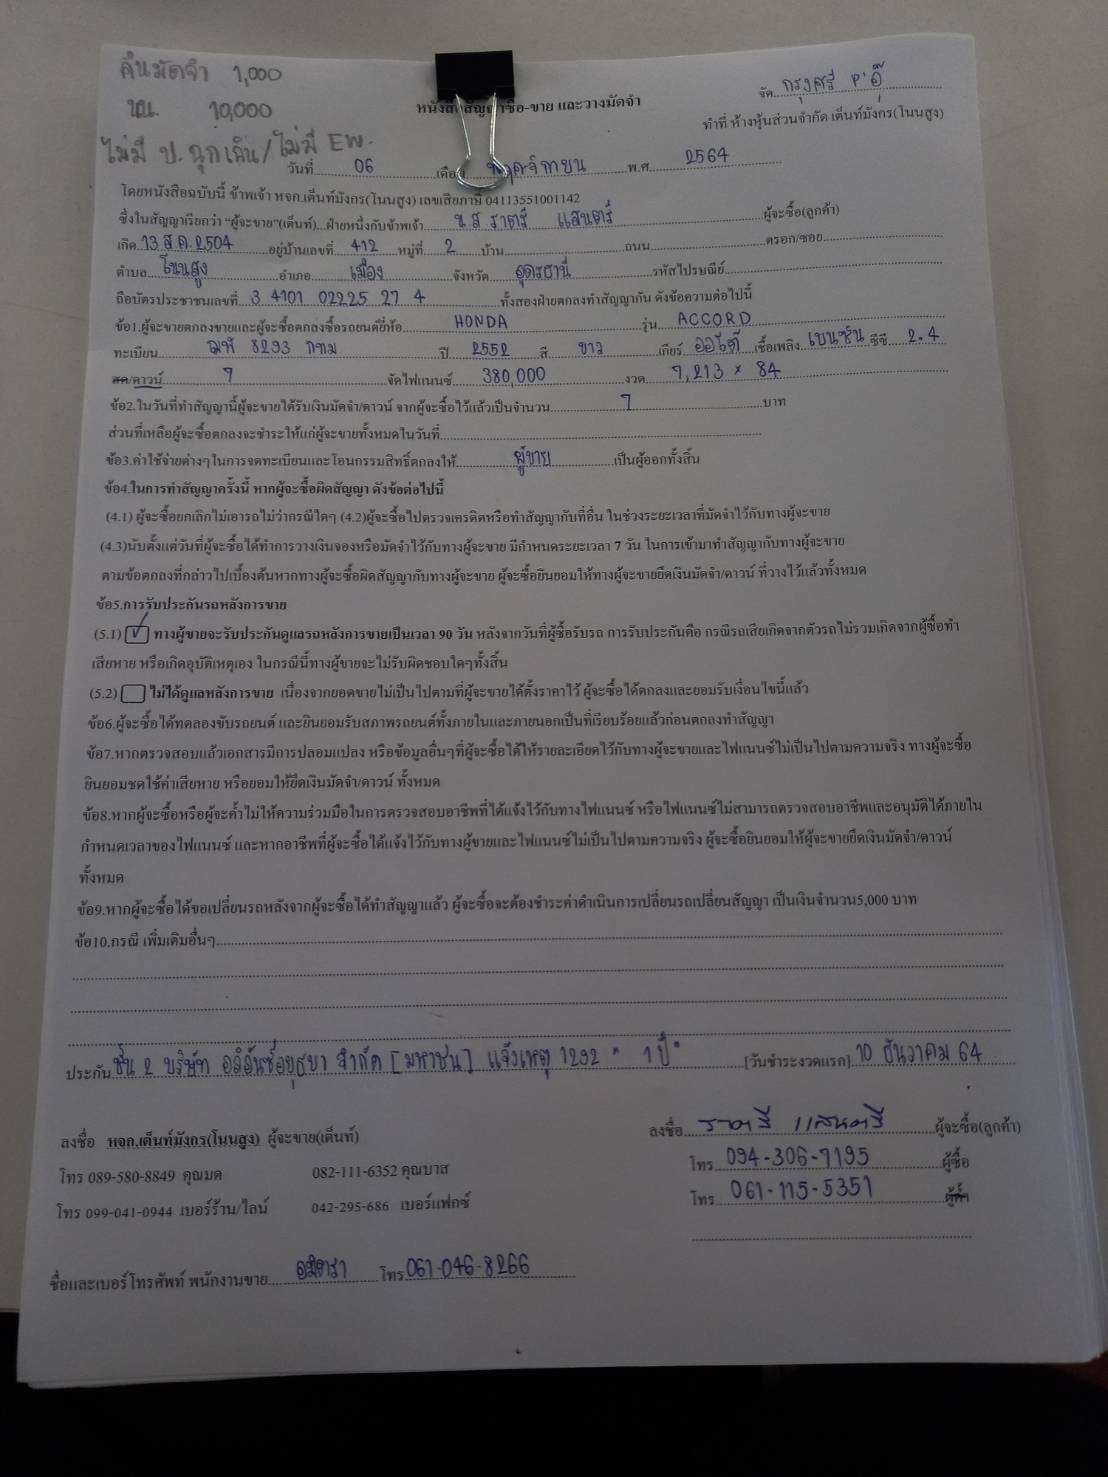 คืนมัดจำ 1,000
10,000
ไม่มี ป. ฉุกเฉิน/ไม่มี EW.
จัด กรุงศรี P'อี๊
หนังสือสัญญาซื้อ-ขาย และวางมัดจำ
ทำที่ ห้างหุ้นส่วนจำกัด เต็นท์มังกร(โนนสูง)
วันที่ 06 เดือน พฤศจิกายน พ.ศ. 2564
โดยหนังสือฉบับนี้ ข้าพเจ้า หจก.เต็นท์มังกร(โนนสูง) เลขเสียภาษี 04113551001142
ซึ่งในสัญญาเรียกว่า "ผู้จะขาย"(เต็นท์)...ฝ่ายหนึ่งกับข้าพเจ้า น.ส ราตรี แสนตรี ผู้จะซื้อ(ลูกค้า)
เกิด 13 ส.ค. 2504 อยู่บ้านเลขที่ 412 หมู่ที่ 2 บ้าน ถนน ตรอก/ซอย
ตำบล โนนสูง อำเภอ เมือง จังหวัด อุดรธานี รหัสไปรษณีย์
ถือบัตรประชาชนเลขที่ 3 4101 02225 27 4 ทั้งสองฝ่ายตกลงทำสัญญากัน ดังข้อความต่อไปนี้
ข้อ1.ผู้จะขายตกลงขายและผู้จะซื้อตกลงซื้อรถยนต์ยี่ห้อ HONDA รุ่น ACCORD
ทะเบียน 8293 กทม ปี 2552 สี ขาว เกียร์ ออโต้ เชื้อเพลิง เบนซิน ซีซี 2.4
สด/ดาวน์ 7 จัดไฟแนนซ์ 380,000 งวด 7,213 x 84
ข้อ2.ในวันที่ทำสัญญานี้ผู้จะขายได้รับเงินมัดจำ/ดาวน์ จากผู้จะซื้อไว้แล้วเป็นจำนวน 7 บาท
ส่วนที่เหลือผู้จะซื้อตกลงจะชำระให้แก่ผู้จะขายทั้งหมดในวันที่
ข้อ3.ค่าใช้จ่ายต่างๆในการจดทะเบียนและโอนกรรมสิทธิ์ตกลงให้ ผู้ขาย เป็นผู้ออกทั้งสิ้น
ข้อ4.ในการทำสัญญาครั้งนี้ หากผู้จะซื้อผิดสัญญา ดังข้อต่อไปนี้
(4.1) ผู้จะซื้อยกเลิกไม่เอารถไม่ว่ากรณีใดๆ (4.2)ผู้จะซื้อไปตรวจเครดิตหรือทำสัญญากับที่อื่น ในช่วงระยะเวลาที่มัดจำไว้กับทางผู้จะขาย
(4.3)นับตั้งแต่วันที่ผู้จะซื้อได้ทำการวางเงินจองหรือมัดจำไว้กับทางผู้จะขาย มีกำหนดระยะเวลา 7 วัน ในการเข้ามาทำสัญญากับทางผู้จะขาย
ตามข้อตกลงที่กล่าวไปเบื้องต้นหากทางผู้จะซื้อผิดสัญญากับทางผู้จะขาย ผู้จะซื้อยินยอมให้ทางผู้จะขายยึดเงินมัดจำ/ดาวน์ ที่วางไว้แล้วทั้งหมด
ข้อ5.การรับประกันรถหลังการขาย
(5.1) ✓ ทางผู้ขายจะรับประกันดูแลรถหลังการขายเป็นเวลา 90 วัน หลังจากวันที่ผู้ซื้อรับรถ การรับประกันคือ กรณีรถเสียเกิดจากตัวรถไม่รวมเกิดจากผู้ซื้อทำ
เสียหาย หรือเกิดอุบัติเหตุเอง ในกรณีนี้ทางผู้ขายจะไม่รับผิดชอบใดๆทั้งสิ้น
(5.2) ไม่ได้ดูแลหลังการขาย เนื่องจากยอดขายไม่เป็นไปตามที่ผู้จะขายได้ตั้งราคาไว้ ผู้จะซื้อได้ตกลงและยอมรับเงื่อนไขนี้แล้ว
ข้อ6.ผู้จะซื้อได้ทดลองขับรถยนต์ และยินยอมรับสภาพรถยนต์ทั้งภายในและภายนอกเป็นที่เรียบร้อยแล้วก่อนตกลงทำสัญญา
ข้อ7.หากตรวจสอบแล้วเอกสารมีการปลอมแปลง หรือข้อมูลอื่นๆที่ผู้จะซื้อได้ให้รายละเอียดไว้กับทางผู้จะขายและไฟแนนซ์ไม่เป็นไปตามความจริง ทางผู้จะซื้อ
ยินยอมชดใช้ค่าเสียหาย หรือยอมให้ยึดเงินมัดจำ/ดาวน์ ทั้งหมด
ข้อ8.หากผู้จะซื้อหรือผู้จะค้ำไม่ให้ความร่วมมือในการตรวจสอบอาชีพที่ได้แจ้งไว้กับทางไฟแนนซ์ หรือไฟแนนซ์ไม่สามารถตรวจสอบอาชีพและอนุมัติได้ภายใน
กำหนดเวลาของไฟแนนซ์ และหากอาชีพที่ผู้จะซื้อได้แจ้งไว้กับทางผู้ขายและไฟแนนซ์ไม่เป็นไปตามความจริง ผู้จะซื้อยินยอมให้ผู้จะขายยึดเงินมัดจำ/ดาวน์
ทั้งหมด
ข้อ9.หากผู้จะซื้อได้ขอเปลี่ยนรถหลังจากผู้จะซื้อได้ทำสัญญาแล้ว ผู้จะซื้อจะต้องชำระค่าดำเนินการเปลี่ยนรถเปลี่ยนสัญญา เป็นเงินจำนวน5,000 บาท
ข้อ10.กรณี เพิ่มเติมอื่นๆ
ประกัน ชั้น 2 บริษัท อลิอันซ์อยุธยา จำกัด [มหาชน] แจ้งเหตุ 1292 " 1 ปี " [วันชำระงวดแรก] 10 ธันวาคม 64
ลงชื่อ หจก.เต็นท์มังกร(โนนสูง) ผู้จะขาย(เต็นท์)
ลงชื่อ ราตรี แสนตรี ผู้จะซื้อ(ลูกค้า)
โทร 089-580-8849 คุณมด 082-111-6352 คุณบาส
โทร 094-306-7195 ผู้ซื้อ
โทร 099-041-0944 เบอร์ร้าน/ไลน์ 042-295-686 เบอร์แฟกซ์
โทร 061-115-5351 ผู้ค้ำ
ชื่อและเบอร์โทรศัพท์ พนักงานขาย โทร 061-046-8266